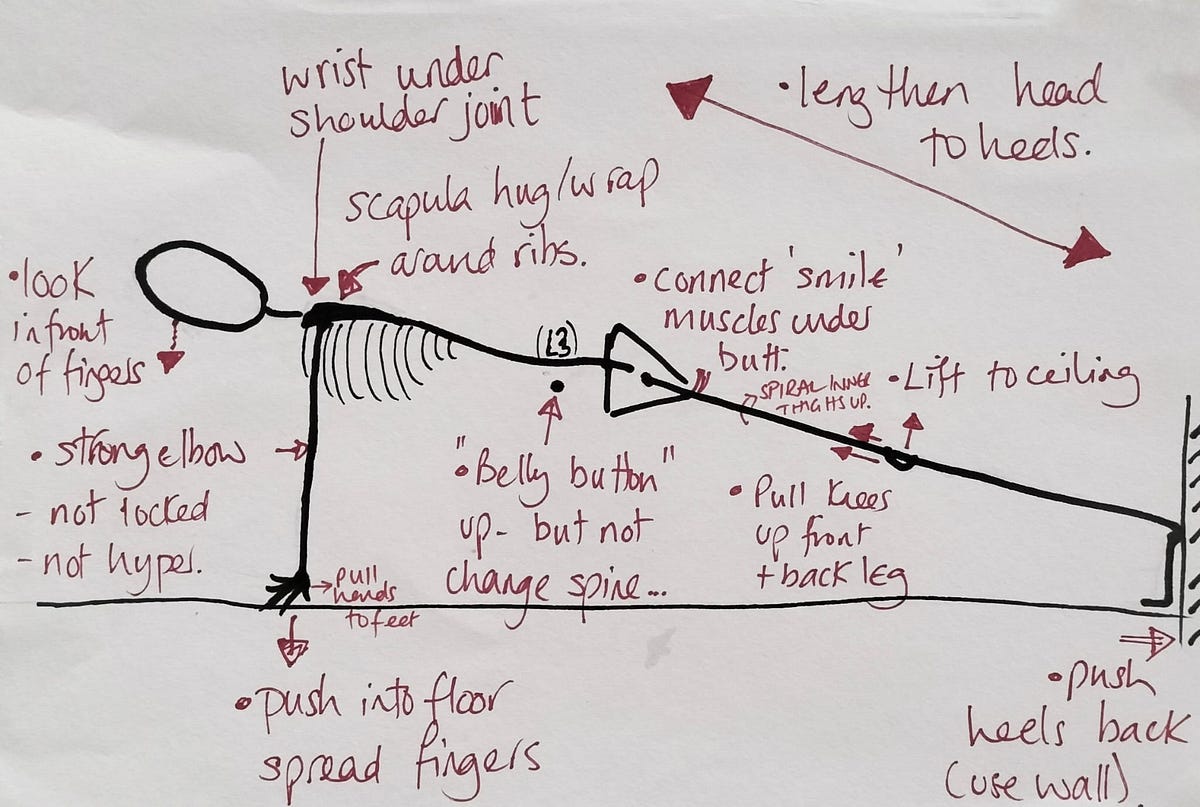 wrist under
shoulder joint
• lengthen head
to heels.
scapula hug/wrap
around ribs.
• look
infront
of fingers
• connect 'smile'
muscles under
butt.
(L3)
SPIRAL INNER
THIGHS UP.
• Lift to ceiling
• strong elbow
- not locked
- not hyper.
"• Belly button"
up - but not
change spine...
• Pull knees
up front
+ back leg
→ pull
hands
to feet
• push into floor
spread fingers
• push
heels back
(use wall).